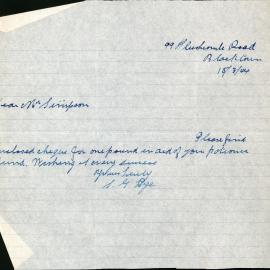 99 Plushcombe Road
Blacktown
15/3/64
ear Mr Simpson
Please find
nclosed cheque for one pound in aid of your petioner
und. Wishing it every success
Yours truly